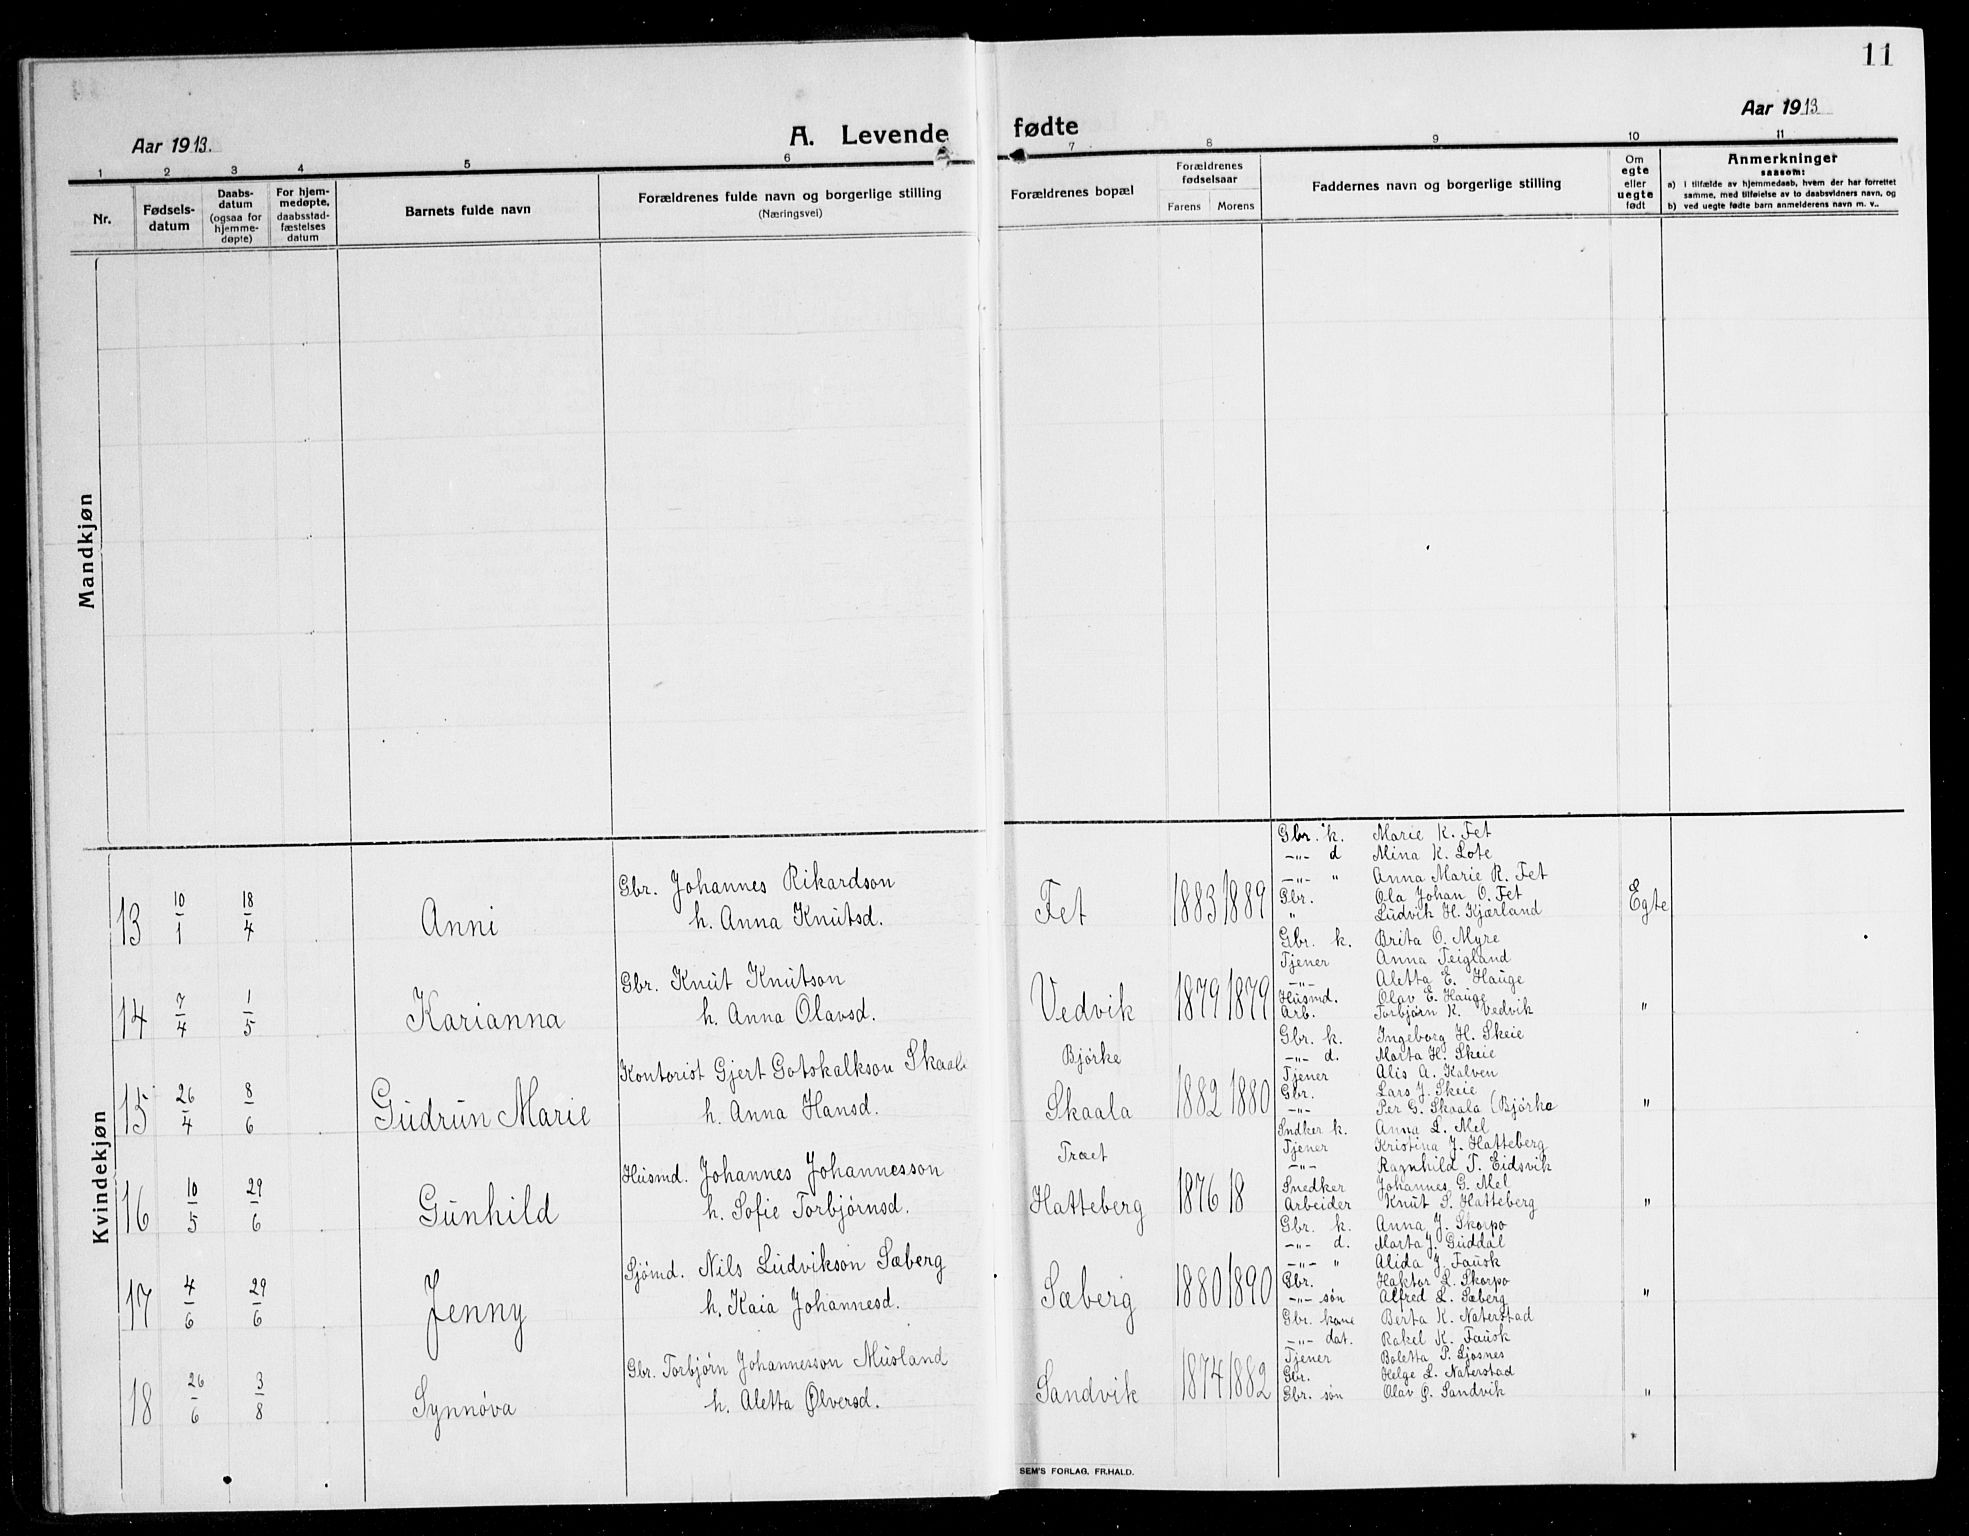 11
Aar 1913.
A. Levende
fødte
Aar 1913
1 2 3 4 5 6 7 8 9 10 11
Nr.
Fødsels-
datum
Daabs-
datum
(ogsaa for
hjemme-
døpte)
For hjem-
medøpte,
daabsstad-
fæstelses
datum
Barnets fulde navn
Forældrenes fulde navn og borgerlige stilling
(Næringsvei)
Forældrenes bopæl
Forældrenes
fødselsaar
Farens Morens
Faddernes navn og borgerlige stilling
Om
egte
eller
uegte
født
Anmerkninger
saasom:
a) i tilfælde av hjemmedaab, hvem der har forrettet
samme, med tilføielse av to daabsvidners navn, og
b) ved uegte fødte barn anmelderens navn m. v..
Mandkjøn
Kvindekjøn
13 10/1 18/4 Anni
Gbr. Johannes Rikardson
h. Anna Knutsd.
Fet 1883 1889
Gbr. k. Marie K. Fet
-„- d Mina K. Lote
-„- " Anna Marie R. Fet
Gbr. Ola Johan O. Fet
" Ludvik H. Kjærland
Egte
14 7/4 1/5 Karianna
Gbr. Knut Knutson
h. Anna Olavsd.
Vedvik 1879 1879
Gbr. k. Brita O. Myre
Tjener Anna Teigland
-„- Aletta E. Hauge
Husmd. Olav E. Hauge
Arb. Torbjørn K. Vedvik
"
15 26/4 8/6 Gudrun Marie
Kontorist Gjert Gotskalkson Skaale
h. Anna Hansd.
Bjørke
Skaala 1882 1880
Gbr. k. Ingeborg H. Skeie
-„- d. Marta H. Skeie
Tjener Alis A. Kalven
Gbr. Lars J. Skeie
-„- Per G. Skaala (Bjørke
"
16 10/5 29/6 Gunhild
Husmd. Johannes Johannesson
h. Sofie Torbjørnsd.
Træet
Hatteberg 1876 18
Sndker k. Anna L. Mel
Tjener Kristina J. Hatteberg
-„- Ragnhild T. Eidsvik
Snedker Johannes G. Mel
Arbeider Knut S. Hatteberg
"
17 4/6 29/6 Jenny
Sjømd. Nils Ludvikson Sæberg
h. Kaia Johannesd.
Sæberg 1880 1890
Gbr. k. Anna J. Skorpo
-„- d. Marta J. Guddal
-„- " Alida J. Fausk
Gbr. Haktor L. Skorpo
-„- søn Alfred L. Sæberg
"
18 26/6 3/8 Synnøva
Gbr. Torbjørn Johannesson Musland
h. Aletta Ølversd.
Sandvik 1874 1882
Gbr. kone Berta K. Naterstad
-„- dat. Rakel K. Fausk
Tjener Boletta P. Ljosnes
Gbr. Helge L. Naterstad
Gbr. søn Olav P. Sandvik
"
SEM'S FORLAG, FR.HALD.